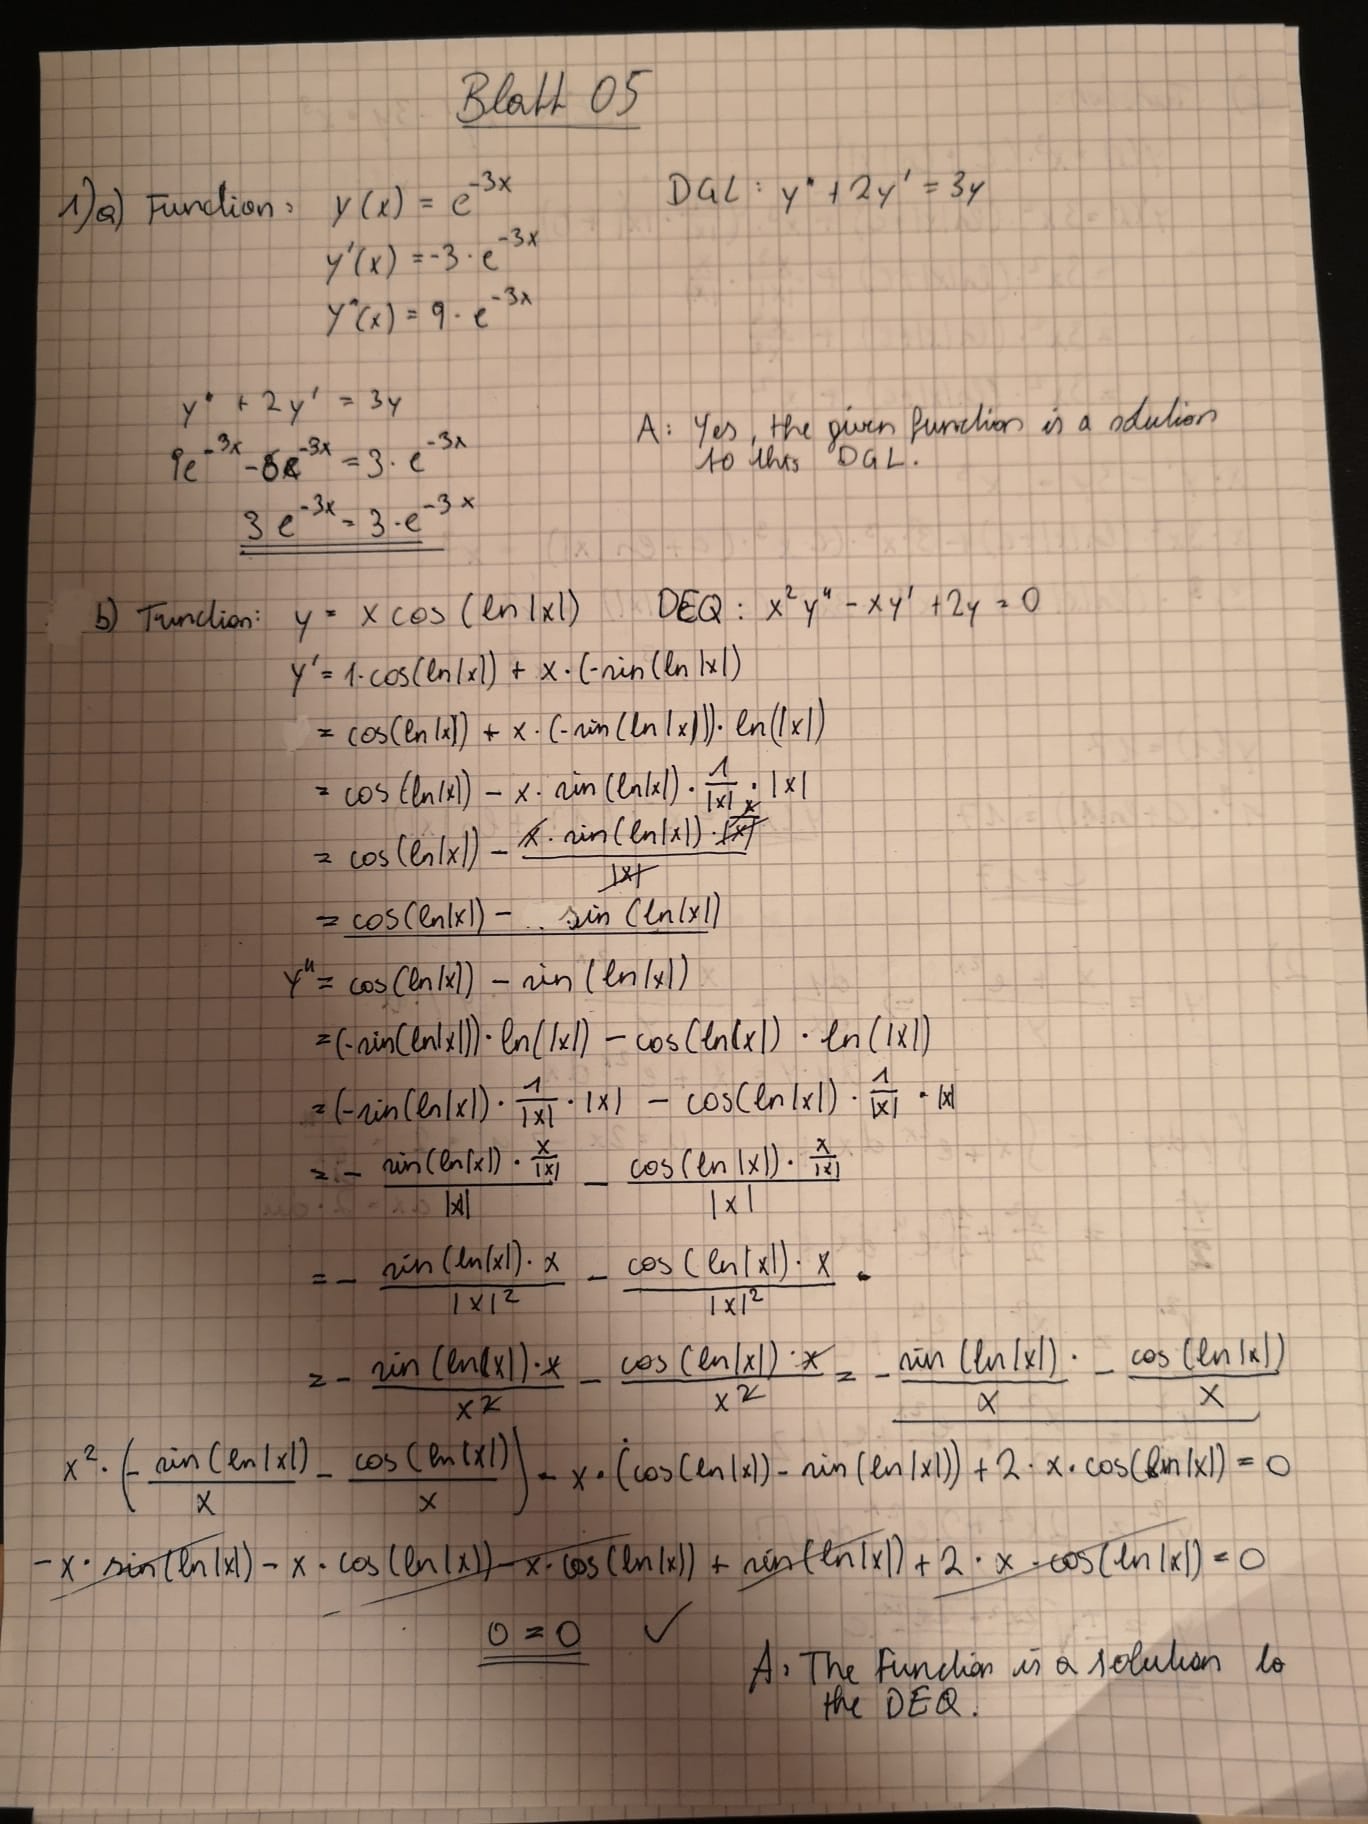 Blatt 05
1) a) Function: y(x) = e^-3x DGL: y" + 2y' = 3y
y'(x) = -3 · e^-3x
y"(x) = 9 · e^-3x
y" + 2y' = 3y
9e^-3x - 6e^-3x = 3 · e^-3x
A: Yes, the given function is a solution
to this DGL.
3 e^-3x = 3 · e^-3x
b) Function: y = x cos (ln|x|) DEQ: x² y" - xy' + 2y = 0
y' = 1 · cos(ln|x|) + x · (-sin(ln|x|)
= cos(ln|x|) + x · (-sin(ln|x|)) · ln(|x|)
= cos(ln|x|) - x · sin(ln|x|) · 1/|x| · |x|
= cos(ln|x|) - x · sin(ln|x|) · x/|x| / |x|
= cos(ln|x|) - sin(ln|x|)
y" = cos(ln|x|) - sin(ln|x|)
= (-sin(ln|x|)) · ln(|x|) - cos(ln|x|) · ln(|x|)
= (-sin(ln|x|) · 1/|x| · |x| - cos(ln|x|) · 1/|x| · |x|
= - sin(ln|x|) · x/|x| / |x| - cos(ln|x|) · x/|x| / |x|
= - sin(ln|x|) · x / |x|² - cos(ln|x|) · x / |x|²
= - sin(ln|x|) · x / x² - cos(ln|x|) · x / x² = - sin(ln|x|) · / x - cos(ln|x|) / x
x² · (- sin(ln|x|) / x - cos(ln|x|) / x) - x · (cos(ln|x|) - sin(ln|x|)) + 2 · x · cos(ln|x|) = 0
-x · sin(ln|x|) - x · cos(ln|x|) - x · cos(ln|x|) + sin(ln|x|) + 2 · x · cos(ln|x|) = 0
0 = 0 ✓
A: The Function is a solution to
the DEQ.